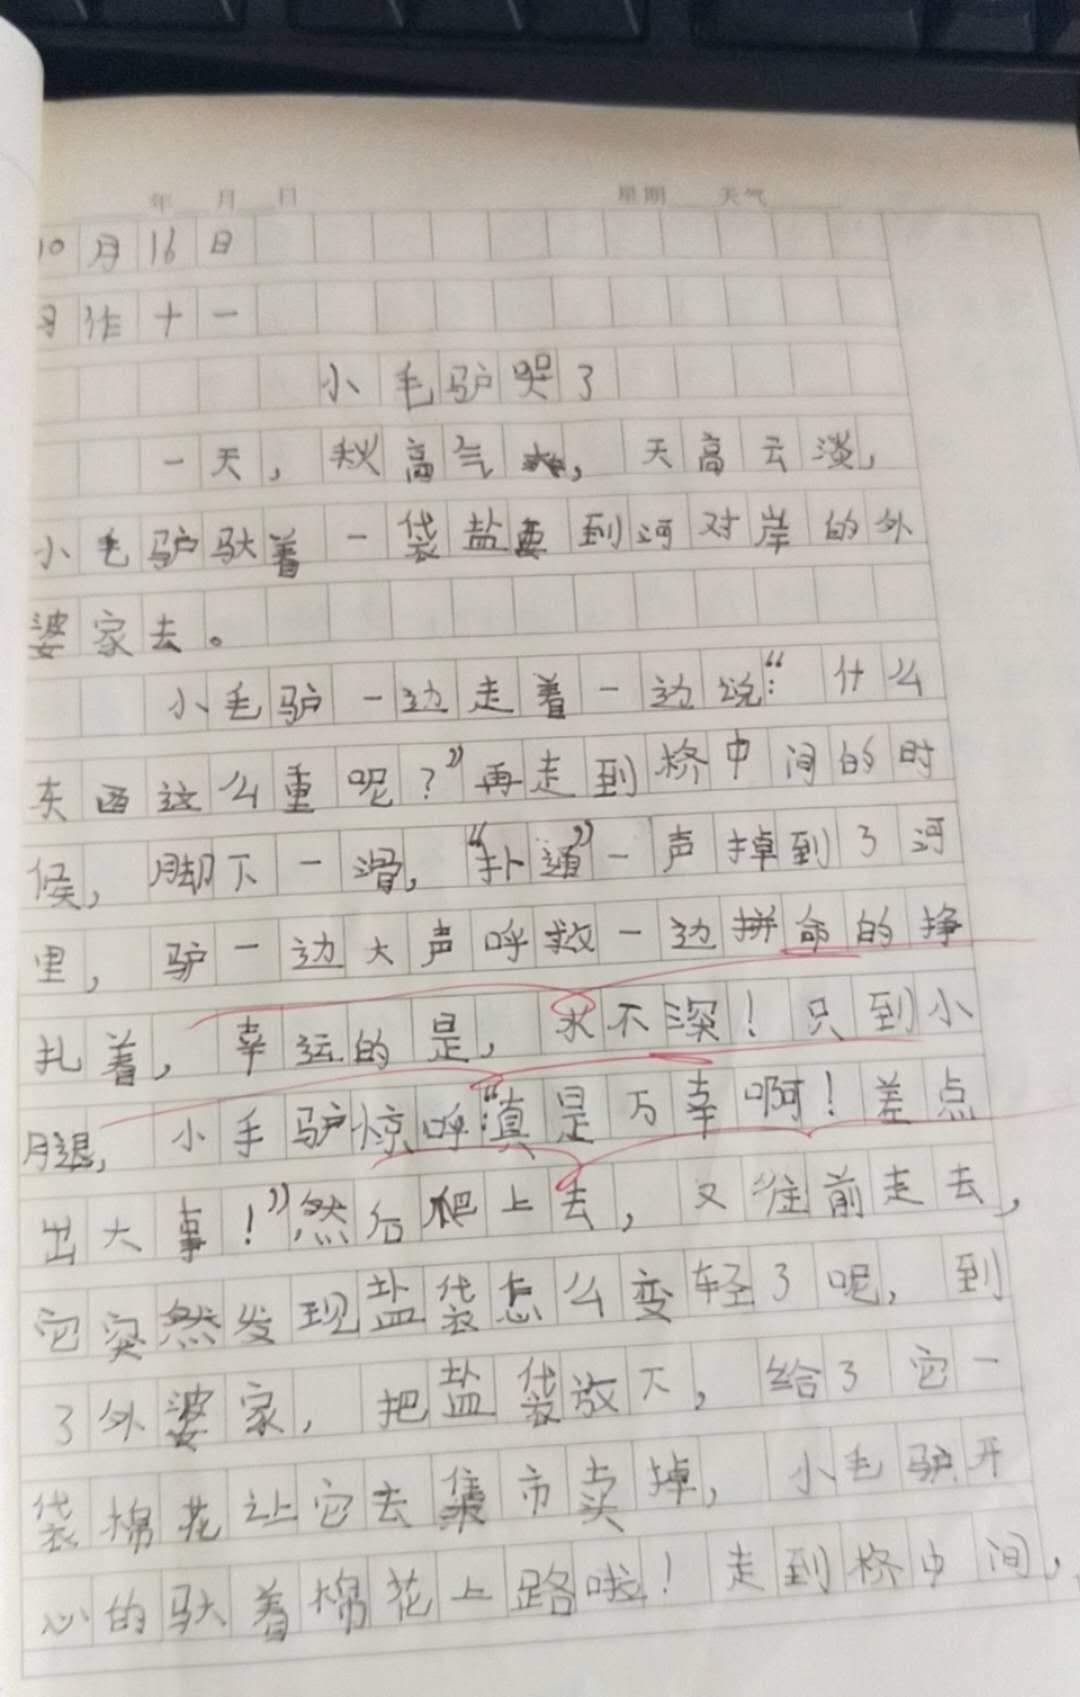 年 月 日 星期 天气
10月16日
习作十一
小毛驴哭了
一天，秋高气爽，天高云淡，
小毛驴驮着一袋盐要到河对岸的外
婆家去。
小毛驴一边走着一边说：“什么
东西这么重呢？”再走到桥中间的时
候，脚下一滑，“扑通”一声掉到了河
里，驴一边大声呼救一边拼命的挣
扎着，幸运的是，水不深！只到小
腿，小手驴惊呼“真是万幸啊！差点
出大事！”然后爬上去，又往前走去，
它突然发现盐袋怎么变轻了呢，到
了外婆家，把盐袋放下，给了它一
袋棉花让它去集市卖掉，小毛驴开
心的驮着棉花上路啦！走到桥中间，